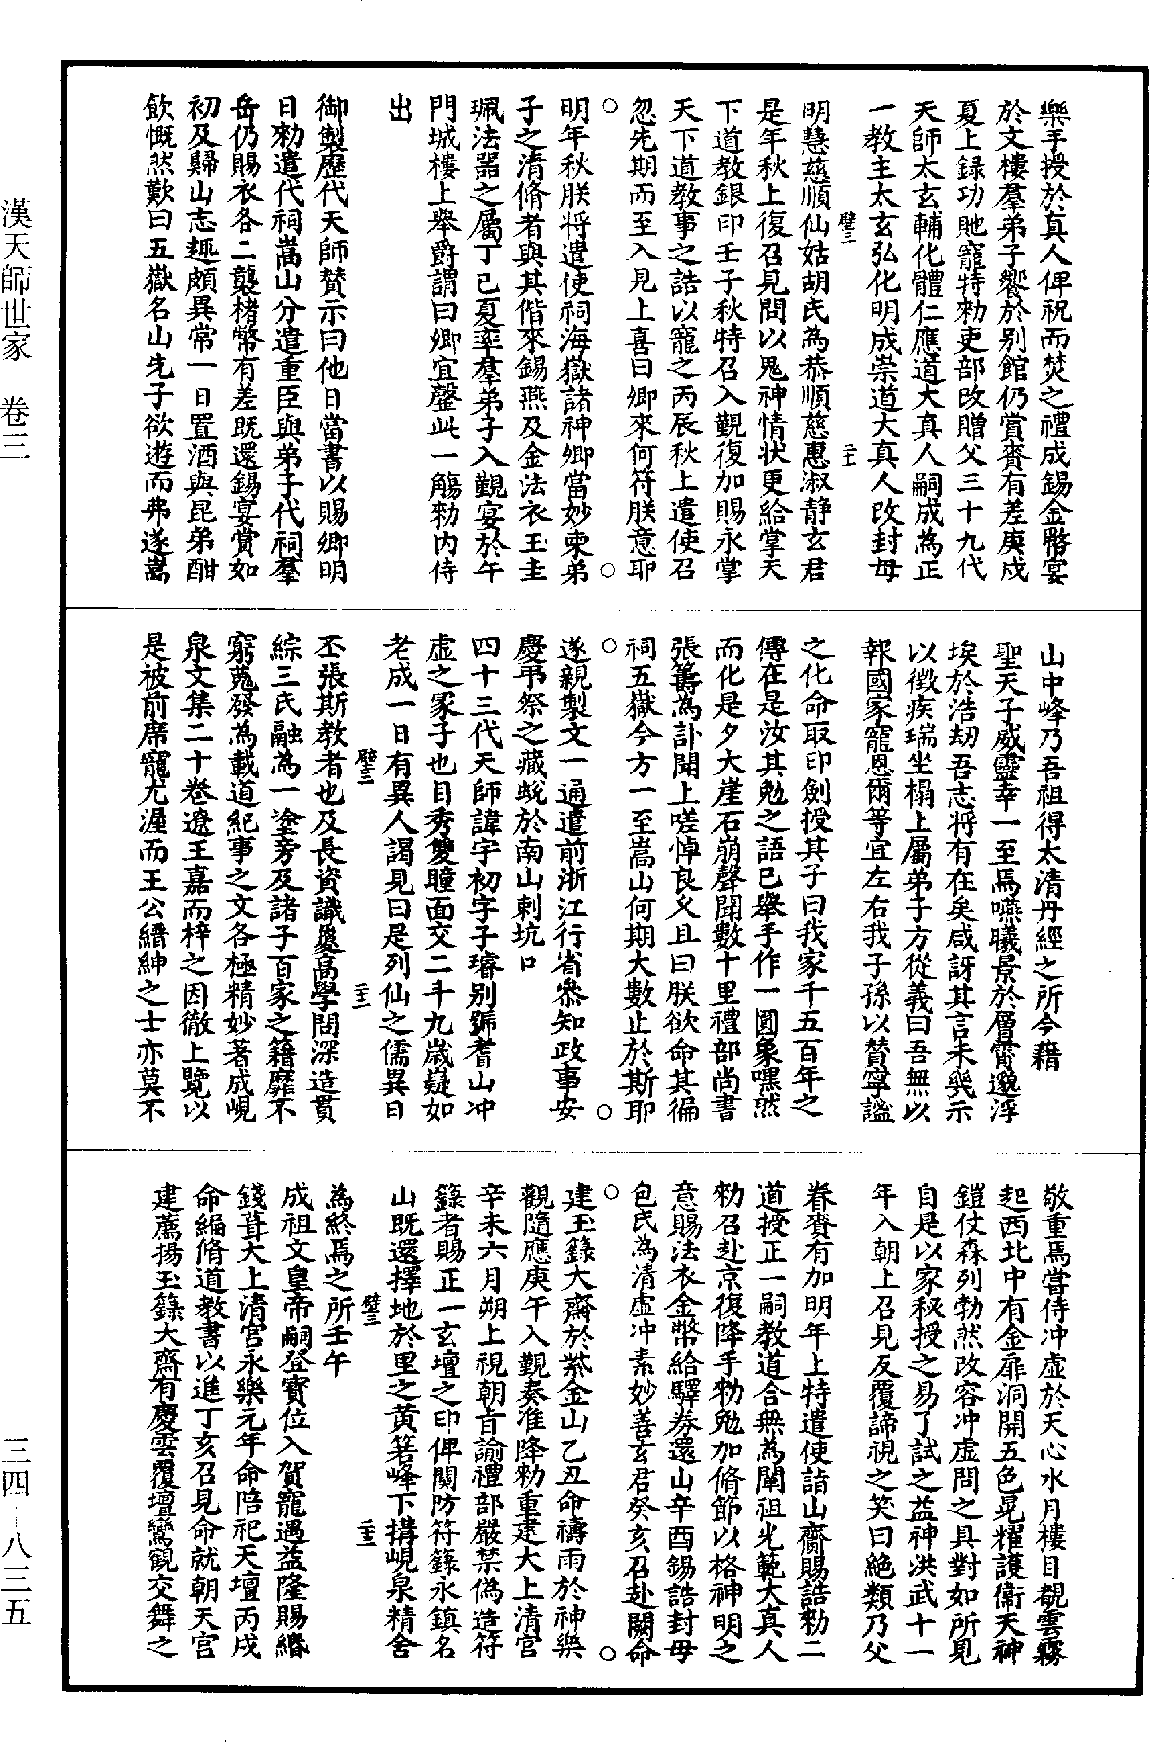 樂手授於真人俾祝而焚之禮成錫金幣宴
於文樓羣弟子饗於別館仍賞賚有差庚戌
夏上錄功貤寵特勑吏部改贈父三十九代
天師太玄輔化體仁應道大真人嗣成為正
一教主太玄弘化明成崇道大真人改封母
璧三
二十
明慧慈順仙姑胡氏為恭順慈惠淑靜玄君
是年秋上復召見問以鬼神情狀更給掌天
下道教銀印壬子秋特召入覲復加賜永掌
天下道教事之誥以寵之丙辰秋上遣使召
忽先期而至入見上喜曰卿來何符朕意耶
○ ○
明年秋朕將遣使祠海嶽諸神卿當妙柬弟
子之清脩者與其偕來錫燕及金法衣玉圭
珮法器之屬丁巳夏率羣弟子入覲宴於午
門城樓上舉爵謂曰卿宜罄此一觴勑內侍
出
御製歷代天師贊示曰他日當書以賜卿明
日勑遣代祠嵩山分遣重臣與弟子代祠羣
岳仍賜衣各二襲楮幣有差既還錫宴賞如
初及歸山志趣頗異常一日置酒與昆弟酣
飲慨然歎曰五獄名山先子欲遊而弗遂嵩
山中峰乃吾祖得太清丹經之所今藉
聖天子威靈幸一至焉嚥曦景於層霄邈浮
埃於浩劫吾志將有在矣咸訝其言未幾示
以徵疾瑞坐榻上屬弟子方從義曰吾無以
報國家寵恩爾等宜左右我子孫以贊寧謐
之化命取印劍授其子曰我家千五百年之
傳在是汝其勉之語已舉手作一圓象嘿然
而化是夕大崖石崩聲聞數十里禮部尚書
張籌為訃聞上嗟悼良久且曰朕欲命其徧
祠五獄今方一至嵩山何期大數止於斯耶
○ ○
遂親製文一通遣前浙江行省叅知政事安
慶弔祭之藏蛻於南山剌坑口
四十三代天師諱宇初字子璿別號耆山冲
虛之冢子也目秀雙瞳面交二斗九歲嶷如
老成一日有異人謁見曰是列仙之儒異日
璧三
二十一
丕張斯教者也及長資識夐高學問深造貫
綜三氏融為一塗旁及諸子百家之籍靡不
窮蒐發為載道紀事之文各極精妙著成峴
泉文集二十卷遼王嘉而梓之因徹上覽以
是被前席寵尤渥而王公縉紳之士亦莫不
敬重焉嘗侍冲虛於天心水月樓目覩雲霧
起西北中有金扉洞開五色晃耀護衛天神
鎧仗森列勃然改容冲虛問之具對如所見
自是以家秘授之易了試之益神洪武十一
年入朝上召見反覆諦視之笑曰絕類乃父
眷賚有加明年上特遣使詣山齎賜誥勑二
道授正一嗣教道合無為闡祖光範大真人
勑召赴京復降手勑勉加脩節以格神明之
意賜法衣金幣給驛券還山辛酉錫誥封母
包氏為清虛冲素妙善玄君癸亥召赴闕命
○ ○
建玉籙大齋於紫金山乙丑命禱雨於神樂
觀隨應庚午入覲奏准降勑重建大上清宮
辛未六月朔上視朝旨諭禮部嚴禁偽造符
籙者賜正一玄壇之印俾關防符籙永鎮名
山既還擇地於里之黄箬峰下搆峴泉精舍
璧三
二十二
為終焉之所壬午
成祖文皇帝嗣登寶位入賀寵遇益隆賜緡
錢葺大上清宮永樂元年命陪祀天壇丙戌
命編脩道教書以進丁亥召見命就朝天宮
建薦揚玉籙大齋有慶雲覆壇鸞鶴交舞之
漢天師世家　卷三
三四—八三五